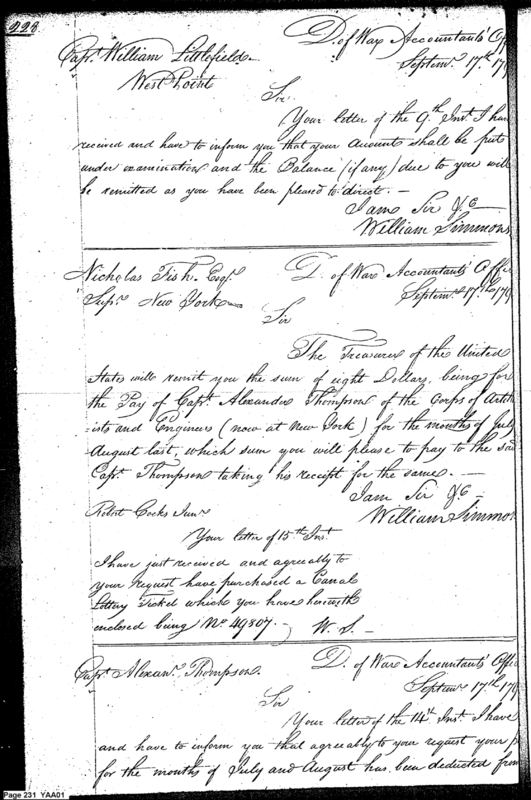 228
D. of War Accountants' Off
Septemr. 17th. 17
Capt. William Littlefield.
West Point
Sir
Your letter of the 9th Inst. I have
received and have to inform you that your Accounts shall be put
under examination and the Balance (if any) due to you will
be remitted as you have been pleased to direct. —
I am Sir &c —
William Simmons
Nicholas Fish Esqr.
D. of War Accountants' Offi
Supr. New York
Septemr. 17th. 179
Sir
The Treasurer of the United
States will remit you the sum of eight Dollars, being for
the Pay of Capt. Alexander Thompson of the Corps of Artill
=ists and Engineers (now at New York) for the months of July
August last, which sum you will please to pay to the said
Capt. Thompson taking his receipt for the same. —
I am Sir &c —
William Simmon
Robert Cocks Junr
Your letter of 15th Inst.
I have just received and agreeably to
your request have purchased a Canal
Lottery Ticket which you have herewith
enclosed being No. 49807.
W. S. —
Capt Alexanr. Thompson.
D. of War Accountants' Offic
Septemr 17th. 179
Sir
Your letter of the 14th Inst. I have
and have to inform you that agreeably to your request your p
for the months of July and August has been deducted from
Page 231 YAA01